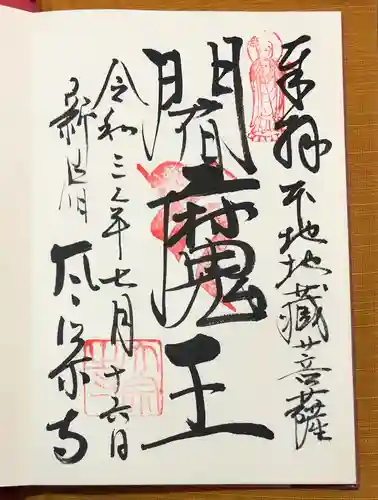 奉拝 本地地藏菩薩
閻魔王
令和三年七月十六日
寺